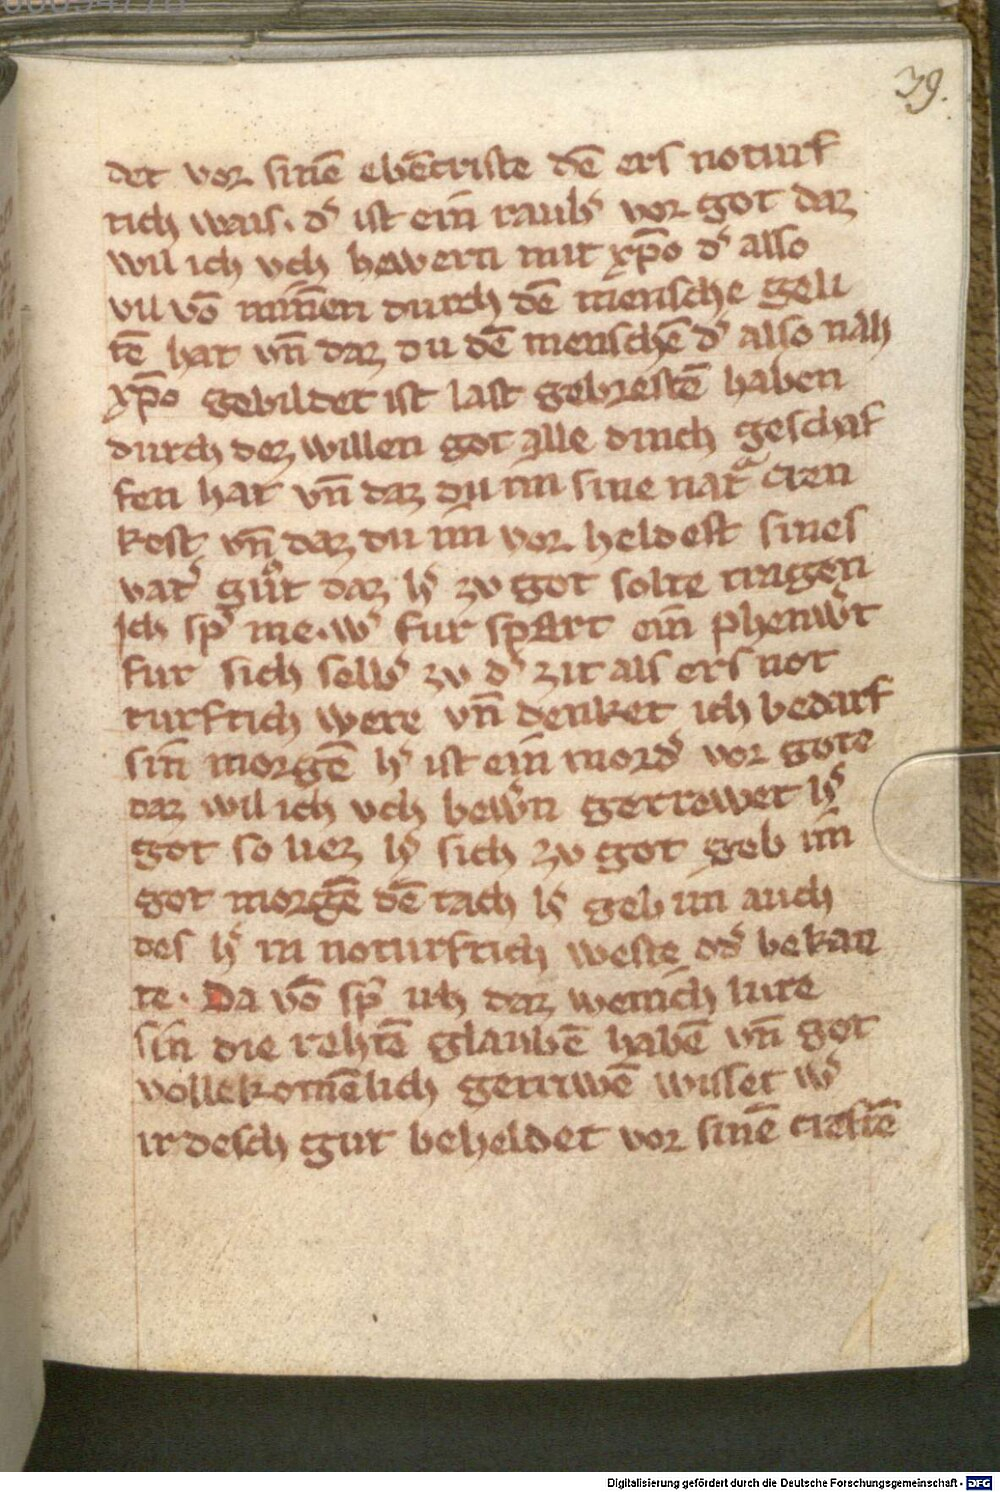 39.
det vor sinē ebēcriste dē ers noturf
tich wais. d͛ ist ein raub͛ vor got daz
wil ich vch bewern mit xp̄o d͛ also
vil vō minnen durch dē mensche geli
tē hat vn̄ daz du dē menschē d͛ also nah
xp̄o gebildet ist last gebrestē haben
durch dez willen got alle dinch geschaf
fen hat vn̄ daz du im sine nat͛ cren
kest vn̄ daz du im vor heldest sines
vat͛ gut daz h͛ zv got solte tragen
Ich sp͛ me. w͛ fur spart ein phenw͛t
fur sich selb͛ zv d͛ zit als ers not
turftich were vn̄ denket ich bedarf
sin morgē h͛ ist ein mord͛ vor gote
daz wil ich vch bew͛n getrewet h͛
got so liez h͛ sich zv got geb im
got morgē dē tach h͛ geb im auch
des h͛ in noturftich weste od͛ bekan
te. Da vō sp͛ ich daz wenich lute
sin die rehtē glaubē habē vn̄ got
vollekomēlich getruwē wisset w͛
irdesch gut beheldet vor sinē cristē
Digitalisierung gefördert durch die Deutsche Forschungsgemeinschaft - DFG